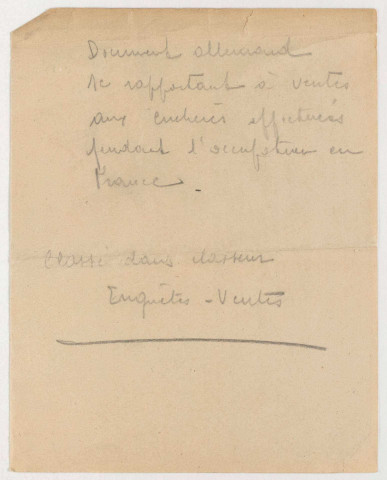 Document allemand
se rapportant à ventes
aux enchères effectuées
pendant l'occupation en
France.
Classé dans classeur
Enquêtes - Ventes